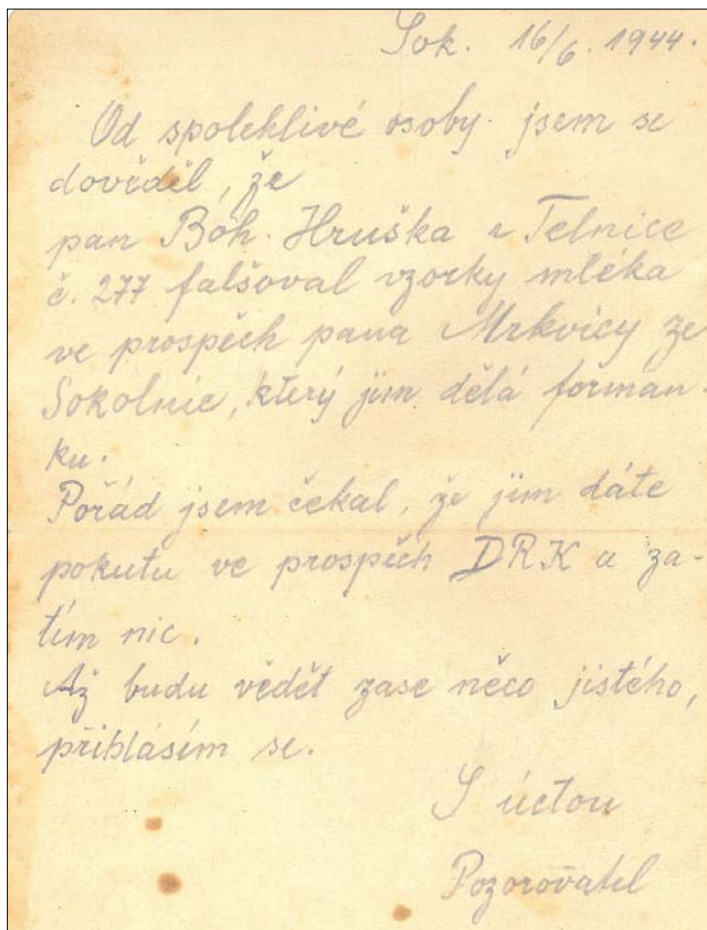 Sok. 16/6. 1944.
Od spolehlivé osoby jsem se
dověděl, že
pan Boh. Hruška z Telnice
č. 277 falšoval vzorky mléka
ve prospěch pana Mrkvicy ze
Sokolnic, který jim dělá forman-
ku.
Pořád jsem čekal, že jim dáte
pokutu ve prospěch DRK a za-
tím nic.
Až budu vědět zase něco jistého,
přihlásím se.
S úctou
Pozorovatel